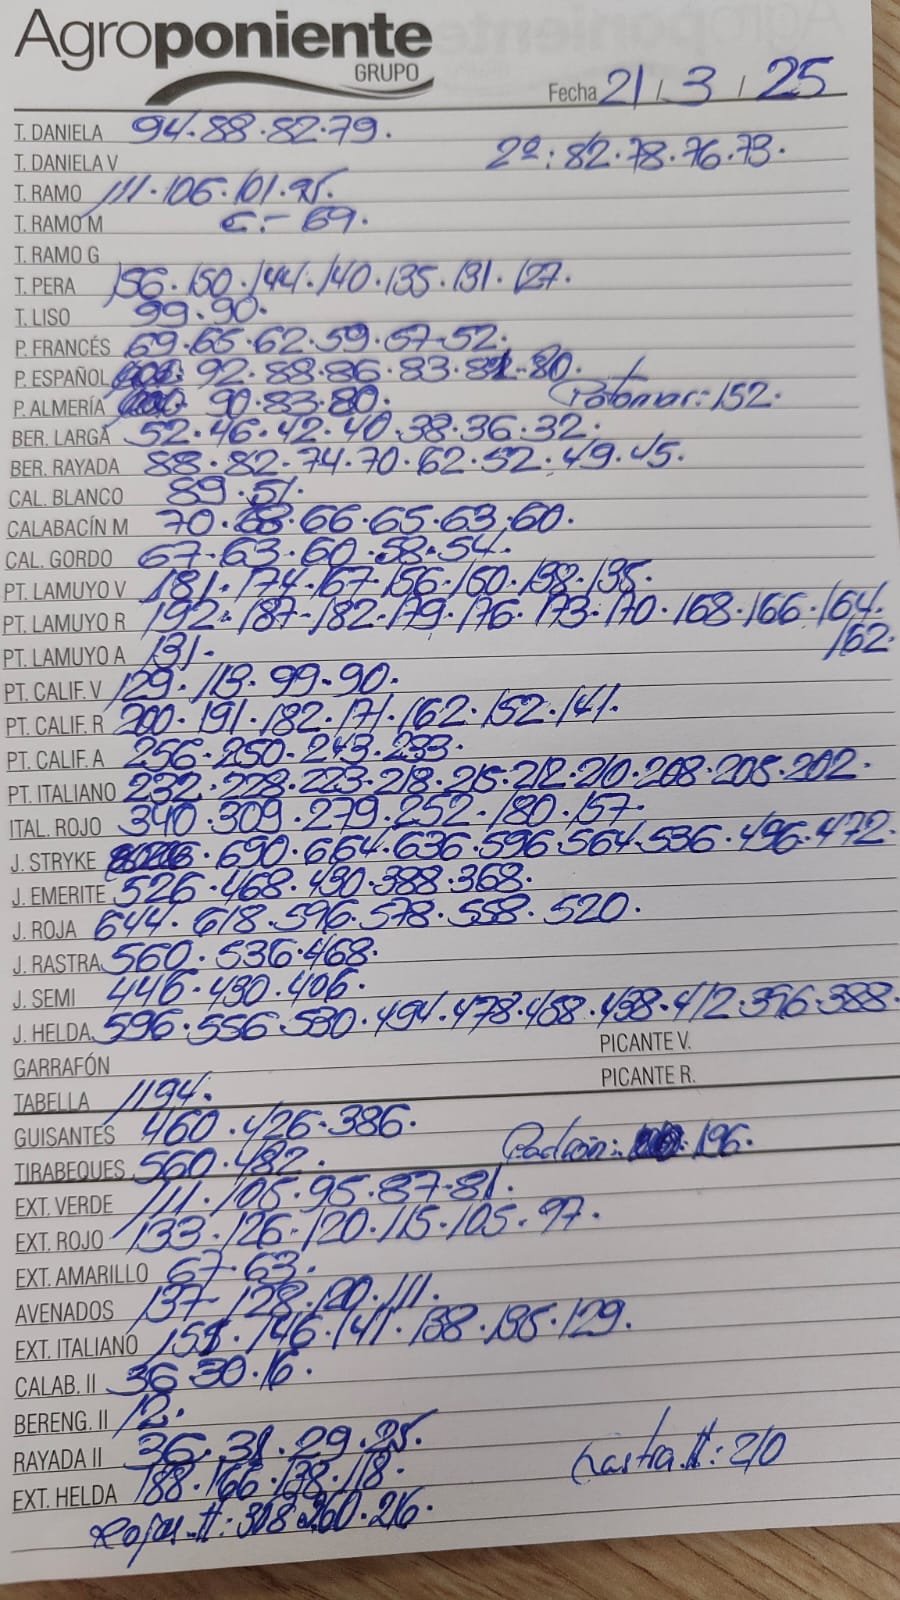 Agroponiente
GRUPO
Fecha 21 / 3 / 25
T. DANIELA 94.88.82.79.
T. DANELA V 2ª: 82.78.76.73.
T. RAMO 111.106.101.95.
T. RAMO M C.- 69.
T. RAMO G
T. PERA 156.150.144.140.135.131.127.
T. LISO 99.90.
P. FRANCÉS 69.65.62.59.57-52.
P. ESPAÑOL 92.88.86.83.81.80.
P. ALMERÍA 90.83.80. Potomac: 152.
BER. LARGA 52.46.42.40.38.36.32.
BER. RAYADA 88.82-74.70.62.52.49.45.
CAL. BLANCO 89.51.
CALABACÍN M 70.68.66.65.63.60.
CAL. GORDO 67-63.60.58.54.
PT. LAMUYO V 181.174-167-156.150.138.135.
PT. LAMUYO R 192.187-182.179.176.173.170.168.166.164.
162.
PT. LAMUYO A 131.
PT. CALIF. V 129.113.99.90.
PT. CALIF. R 200.191.182.171.162.152.141.
PT. CALIF. A 256.250.243.233.
PT. ITALIANO 232.228.223.218.215.212.210.208.205.202.
ITAL. ROJO 340.309.279.252.180.157.
J. STRYKE .690.664.636.596.564.536.496.472.
J. EMERITE 526.468.430.388.368.
J. ROJA 644.618.596.578.558.520.
J. RASTRA 560.536.468.
J. SEMI 446.430.406.
J. HELDA 596.556.530.494.478.458.438.412.396.388.
GARRAFÓN PICANTE V.
PICANTE R.
TABELLA 1194.
GUISANTES 460.426.386.
TIRABEQUES 560.482. Padrón: 196.
EXT. VERDE 111.105.95.87-81.
EXT. ROJO 133.126.120.115.105.97.
EXT. AMARILLO 67.63.
AVENADOS 137-128.120.111.
EXT. ITALIANO 151.146.141.138.135.129.
CALAB. II 36.30.16.
BERENG. II 12.
RAYADA II 36.31.29.25.
EXT. HELDA 188.166.138.118. Rastra II: 210
Rojas II: 318.260.216.